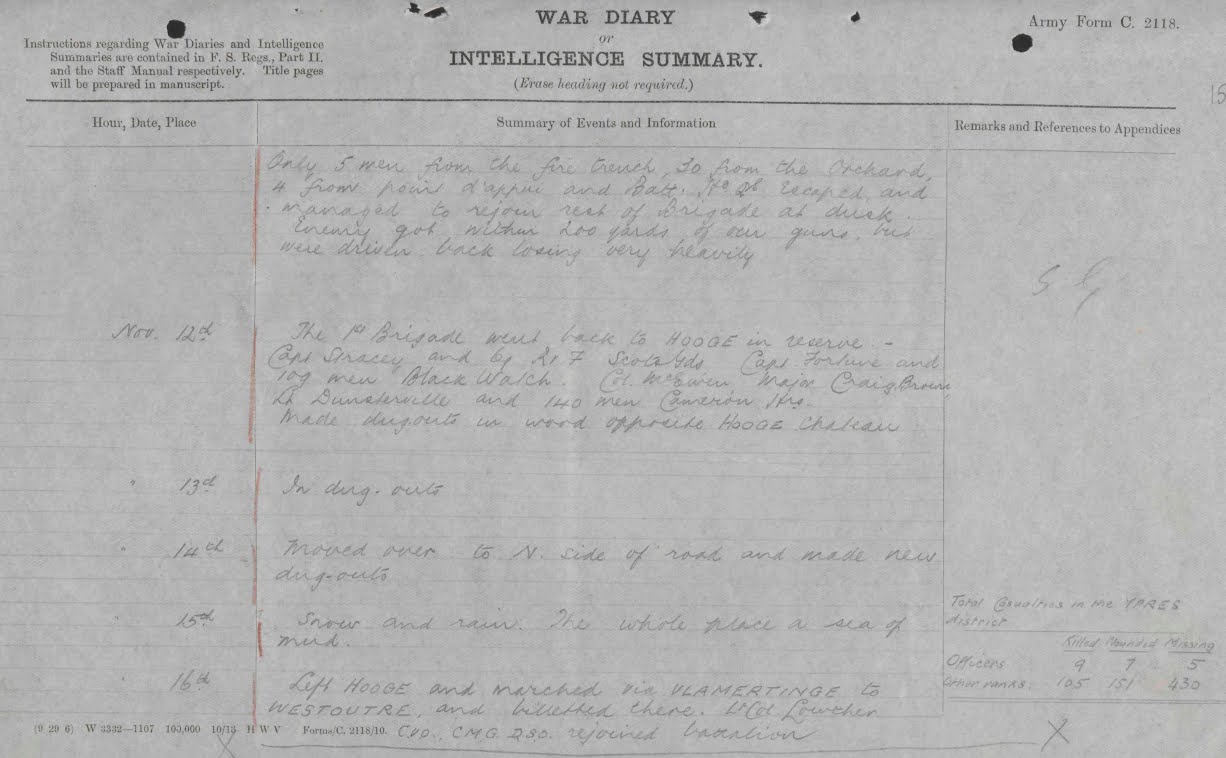 WAR DIARY
or
INTELLIGENCE SUMMARY.
(Erase heading not required.)
Army Form C. 2118.
Instructions regarding War Diaries and Intelligence
Summaries are contained in F. S. Regs., Part II.
and the Staff Manual respectively. Title pages
will be prepared in manuscript.
15
Hour, Date, Place
Summary of Events and Information
Remarks and References to Appendices
Only 5 men from the fire trench, 30 from the Orchard,
4 from point d'appui and Batt. Hd Qrs escaped and
managed to rejoin rest of Brigade at dusk.
Enemy got within 200 yards of our guns, but
were driven back losing very heavily
Nov. 12th
The 1st Brigade went back to HOOGE in reserve. -
Capt Stracey and 69 R & F Scots Gds Capt Fortune and
109 men Black Watch. Col. McEwen, Major Craig Brown,
Lt Dunsterville and 140 men Cameron Hrs.
Made dugouts in wood opposite HOOGE Chateau
" 13th
In dug-outs
" 14th
Moved over to N. side of road and made new
dug-outs
" 15th
Snow and rain. The whole place a sea of
mud.
" 16th
Left HOOGE and marched via VLAMERTINGE to
WESTOUTRE, and billetted there. Lt Col Lowther
C.V.O., C.M.G. D.S.O. rejoined battalion
Total Casualties in the YPRES
district
Killed Wounded Missing
Officers 9 7 5
Other ranks. 105 151 430
(9 29 6) W 3332—1107 100,000 10/13 H W V Forms/C. 2118/10.